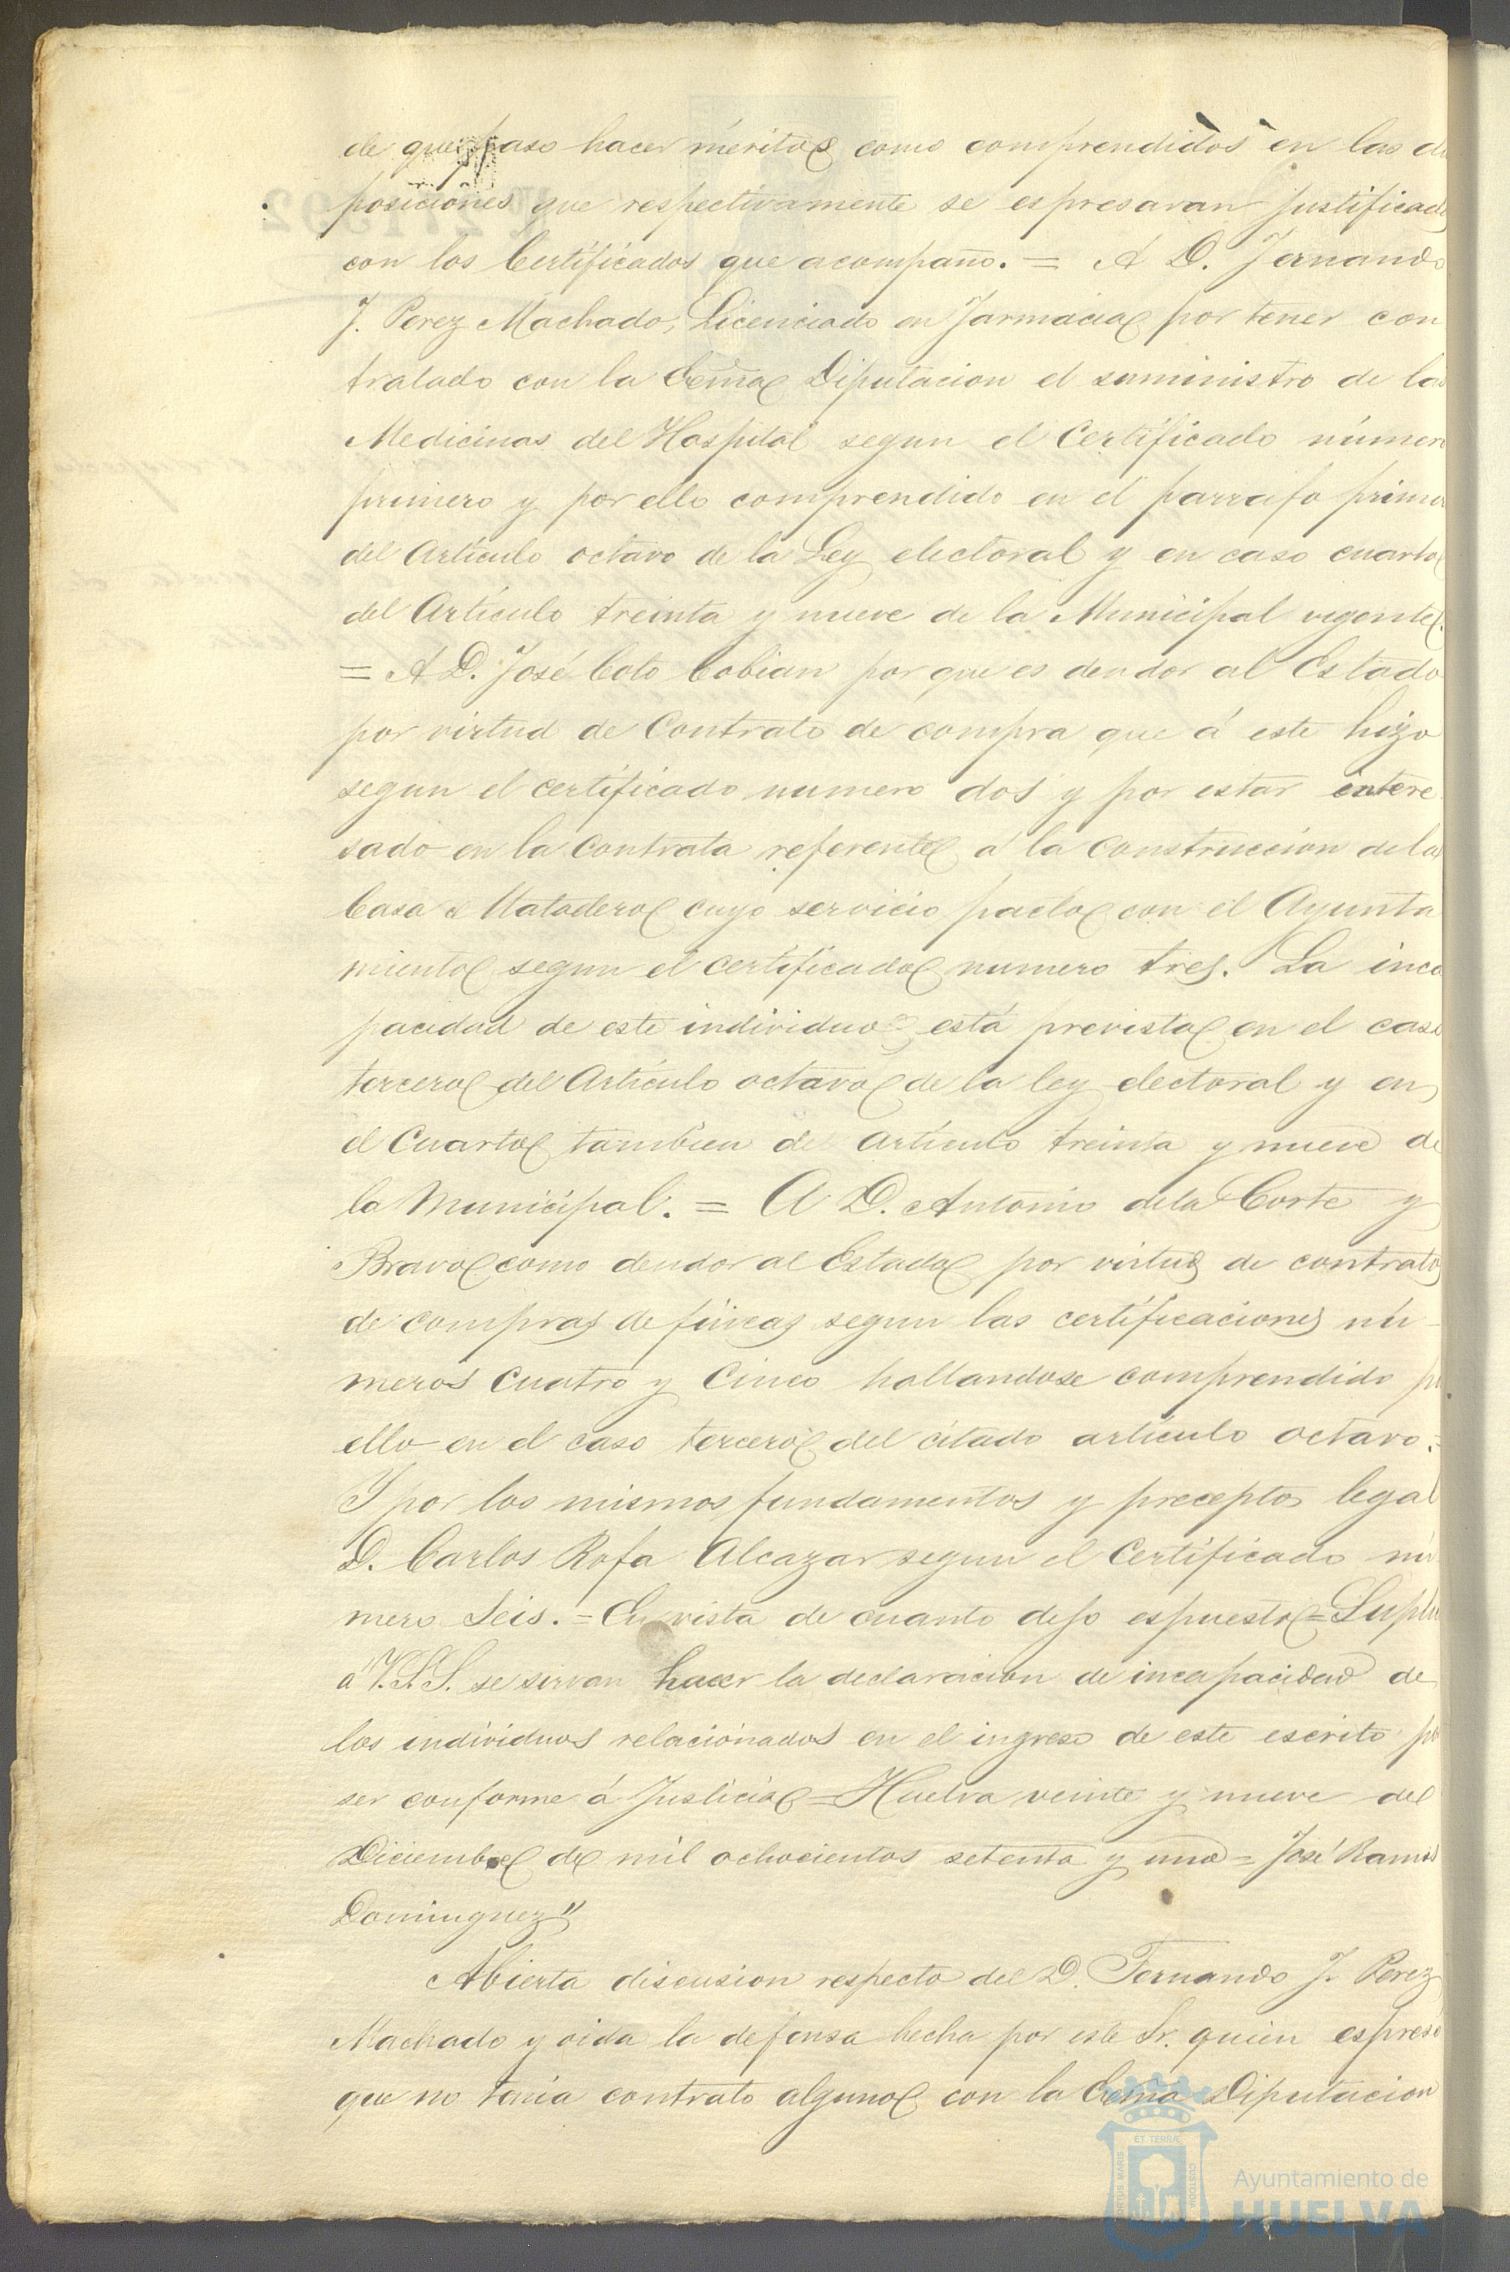 de que paso hacer méritos como comprendidos en las di
posiciones que respectivamente se espresaran justificado
con los Certificados que acompaño. = A D. Fernando
J. Perez Machado, Licenciado en Farmacia por tener con
tratado con la Exma Diputacion el suministro de las
Medicinas del Hospital segun el Certificado número
primero y por ello comprendido en el parrafo primo
del Artículo octavo de la Ley electoral y en caso cuarto
del Artículo treinta y nueve de la Municipal vigente.
= A D. José Coto Cobian por que es deudor al Estado
por virtud de Contrato de compra que á este hizo
segun el certificado numero dos y por estar intere
sado en la contrata referente á la construccion de la
Casa Matadero cuyo servicio pacto con el Ayunta
miento segun el certificado numero tres. La inca
pacidad de este individuo está prevista en el caso
tercero del Artículo octavo de la ley electoral y en
el Cuarto tambien de Artículo treinta y nueve de
la Municipal. = A D. Antonio de la Corte y
Bravo como deudor al Estado por virtud de contratos
de compras de fincas segun las certificaciones nú-
meros Cuatro y Cinco hallandose comprendido po
ello en el caso tercero del citado artículo octavo. =
Y por los mismos fundamentos y precepto legal
D. Carlos Rofa Alcazar segun el Certificado nú
mero Seis. = En vista de cuanto dejo espuesto = Suplic
á V.S.S. se sirvan hacer la declaracion de incapacidad de
los individuos relacionados en el ingreso de este escrito po
ser conforme á Justicia = Huelva veinte y nueve del
Diciembre de mil ochocientos setenta y uno = José Ramos
Dominguez"
Abierta discusion respecto del D. Fernando J. Perez
Machado y oida la defensa hecha por este Sr. quien espresó
que no tenia contrato alguno con la Exma Diputacion
ET TERRÆ
PORTUS MARIS
CUSTODIA
Ayuntamiento de
HUELVA